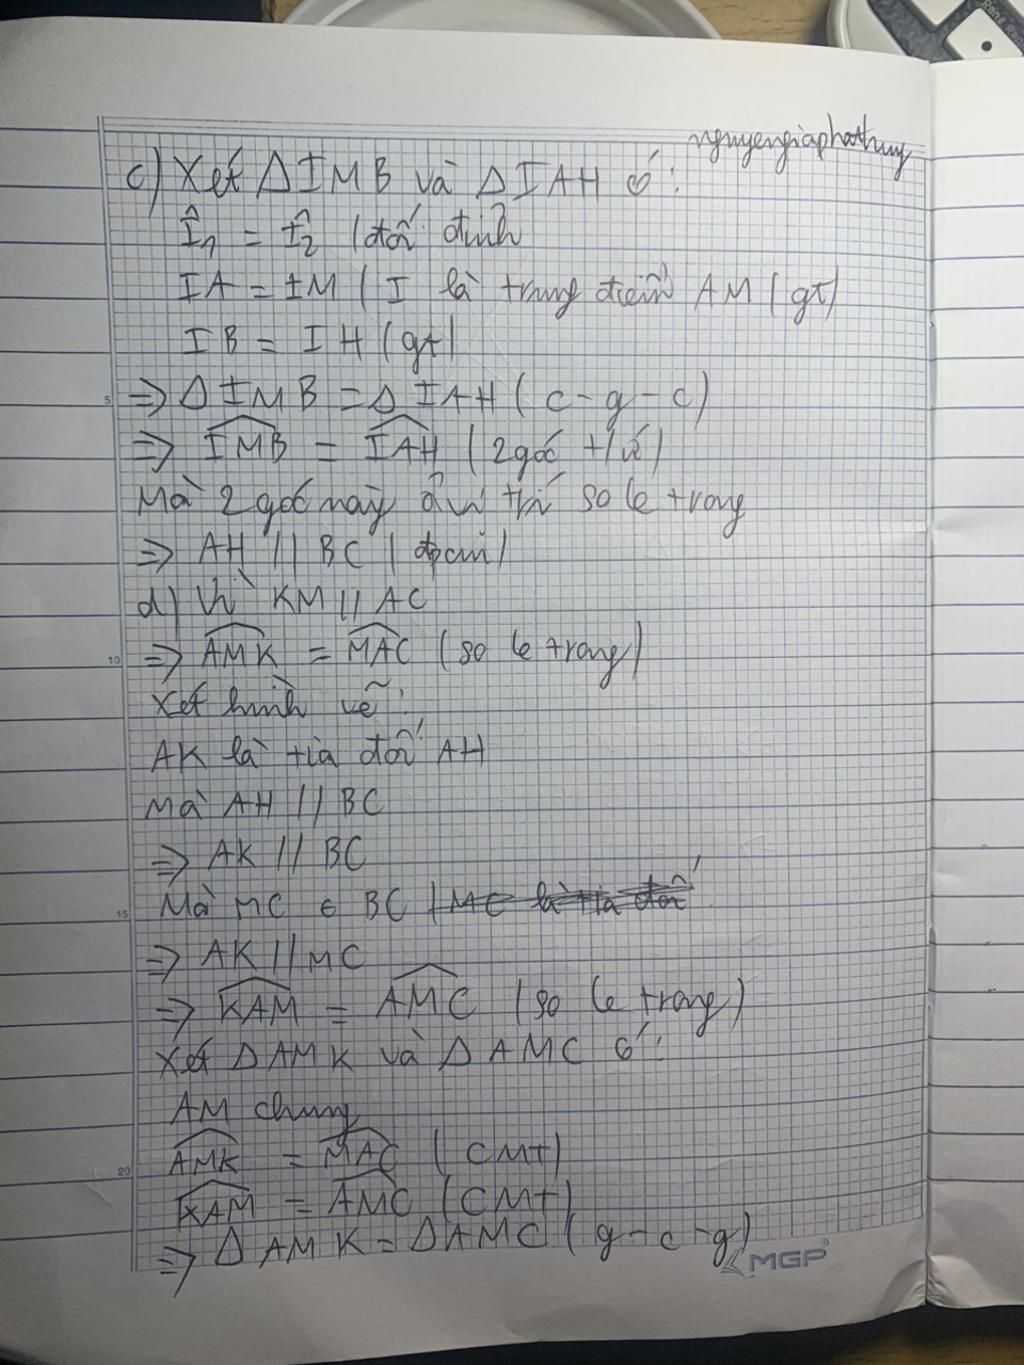 nguyengiaphathuy
c) Xét Δ IMB và Δ IAH có :
Î1 = Î2 (đối đỉnh
IA = IM ( I là trung điểm AM (gt)
IB = IH (gt)
5 => Δ IMB = Δ IAH ( c-g-c)
=> IMB = IAH (2 góc t/ứ)
Mà 2 góc này ở vị trí so le trong
=> AH // BC (đpcm)
d) Vì KM // AC
10 => AMK = MAC (so le trong)
Xét hình vẽ :
AK là tia đối AH
Mà AH // BC
=> AK // BC
15 Mà MC ∈ BC (MC là tia đối
=> AK // MC
=> KAM = AMC (so le trong)
Xét Δ AMK và Δ AMC có :
AM chung
20 AMK = MAC ( CMT)
KAM = AMC (CMT)
=> Δ AMK = Δ AMC ( g-c-g)
MGP